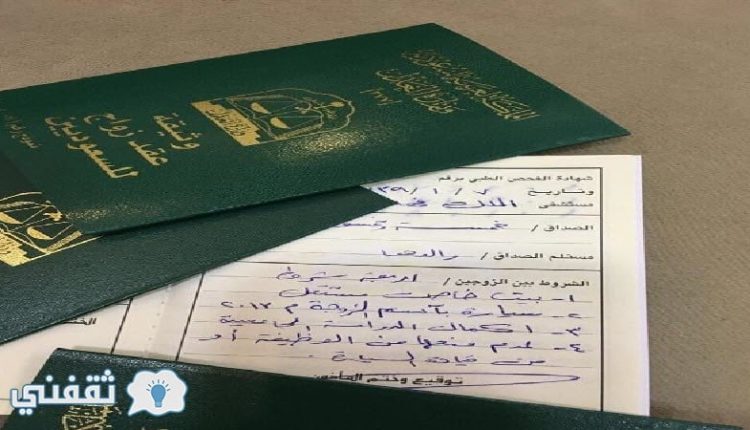 المملكة العربية السعودية
وزارة العدل
وثيقة
عقد زواج
للسعوديين
شهادة الفحص الطبي برقم
وتاريخ ٧ / ١ / ٣٩
مستشفى الملك
الصداق / خمسة
مستلم الصداق / والدها
الشروط بين الزوجين / اربعة شروط
١- بيت خاص مستقل
٢- سيارة بأسم الزوجة م ٢٠١٣
٣- اكمال الدراسة
٤- عدم منعها من الوظيفة أو
من قيادة السيارة.
توقيع وختم المأذون
ثقفني